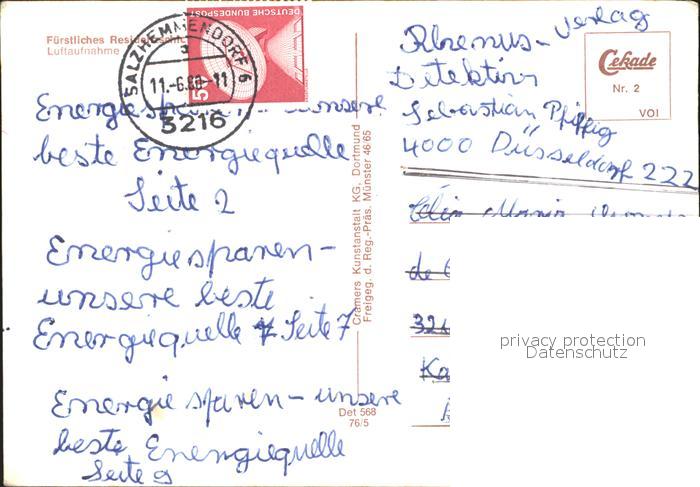 Fürstliches
Luftaufnahme
DEUTSCHE BUNDESPOST
SALZHEMMENDORF 6
a
11.-6.80-11
3216
Energiesparen - unsere
beste Energiequelle
Seite 2
Energiesparen -
unsere beste
Energiequelle Seite 7
Energie sparen - unsere
beste Energiequelle
Seite 9
Cramers Kunstanstalt KG. Dortmund
Freigeg. d. Reg.-Präs. Münster 46/65
Det 568
76/5
Rhenus-Verlag
Detektiv
Sebastian Pfiffig
4000 Düsseldorf 222
Cekade
Nr. 2
VOI
de
321
Ka
privacy protection
Datenschutz